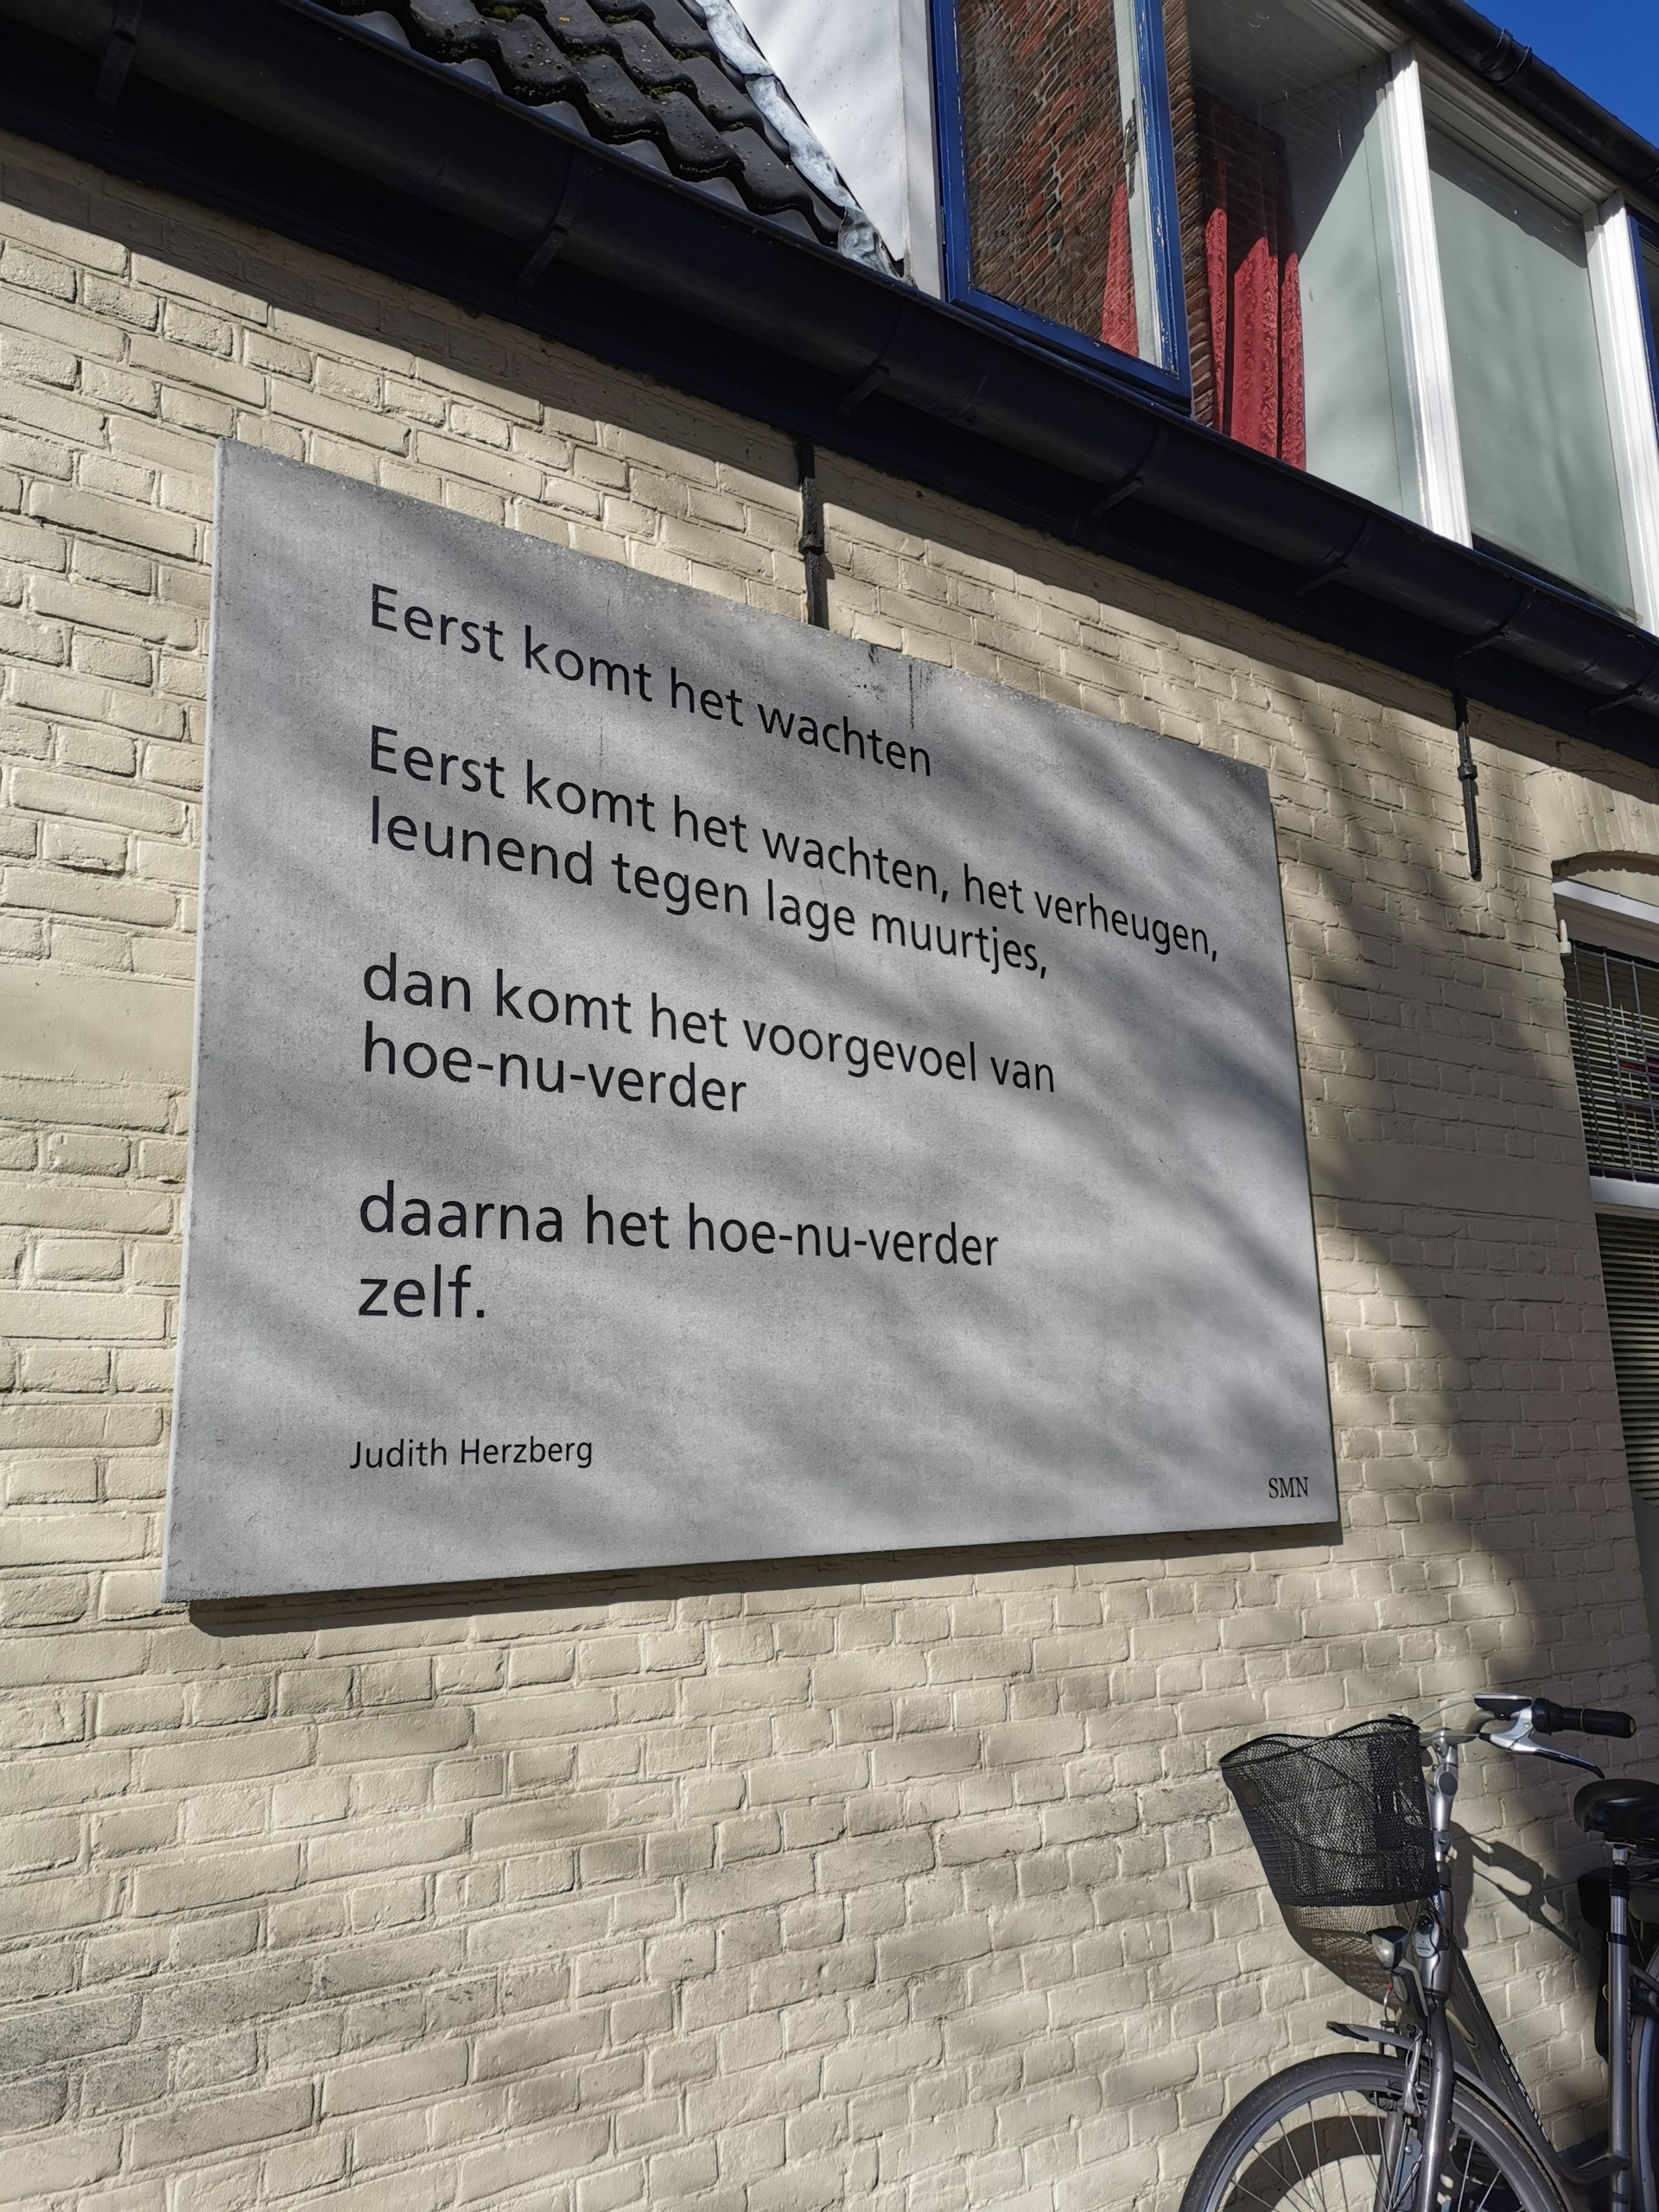 Eerst komt het wachten
Eerst komt het wachten, het verheugen,
leunend tegen lage muurtjes,
dan komt het voorgevoel van
hoe-nu-verder
daarna het hoe-nu-verder
zelf.
Judith Herzberg
SMN